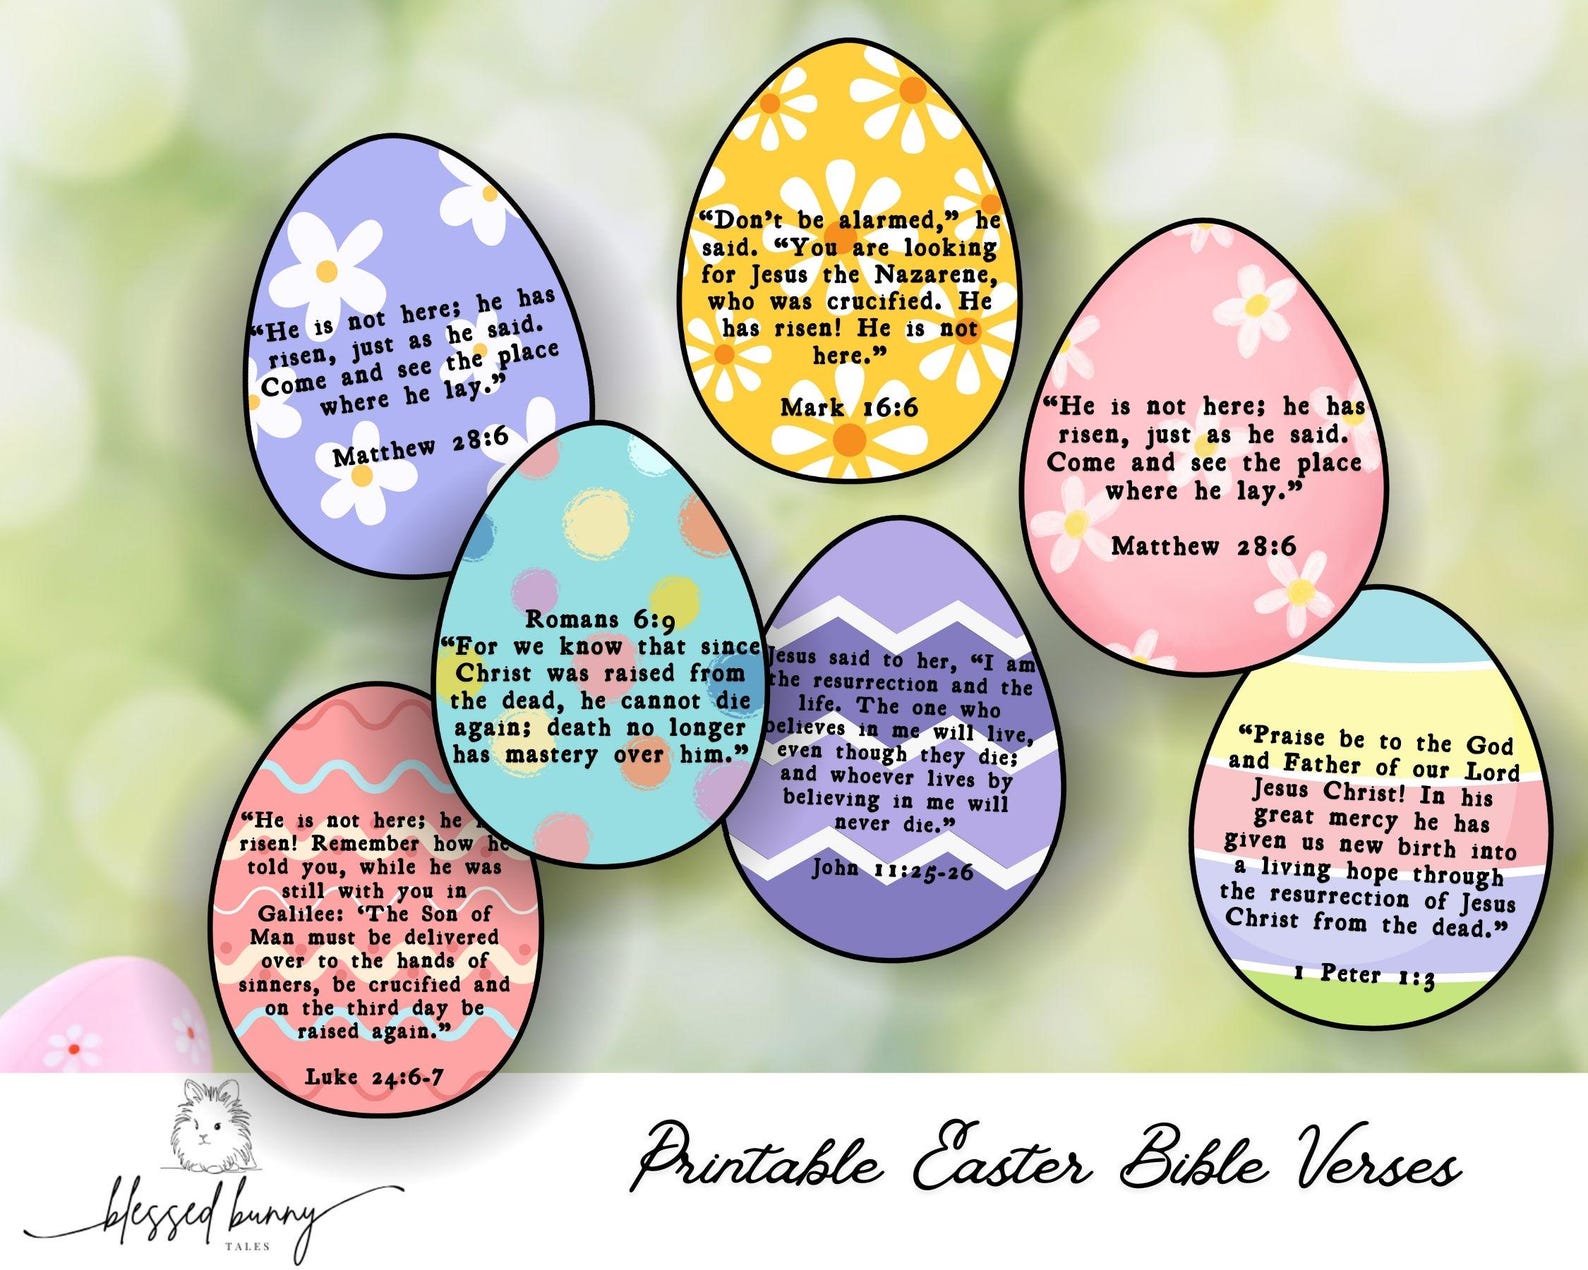 “Don’t be alarmed,” he
said. “You are looking
for Jesus the Nazarene,
who was crucified. He
has risen! He is not
here.”
Mark 16:6
“He is not here; he has
risen, just as he said.
Come and see the place
where he lay.”
Matthew 28:6
“He is not here; he has
risen, just as he said.
Come and see the place
where he lay.”
Matthew 28:6
Romans 6:9
“For we know that since
Christ was raised from
the dead, he cannot die
again; death no longer
has mastery over him.”
Jesus said to her, “I am
the resurrection and the
life. The one who
believes in me will live,
even though they die;
and whoever lives by
believing in me will
never die.”
John 11:25-26
“Praise be to the God
and Father of our Lord
Jesus Christ! In his
great mercy he has
given us new birth into
a living hope through
the resurrection of Jesus
Christ from the dead.”
1 Peter 1:3
“He is not here; he
risen! Remember how he
told you, while he was
still with you in
Galilee: ‘The Son of
Man must be delivered
over to the hands of
sinners, be crucified and
on the third day be
raised again.”
Luke 24:6-7
blessed bunny
TALES
Printable Easter Bible Verses